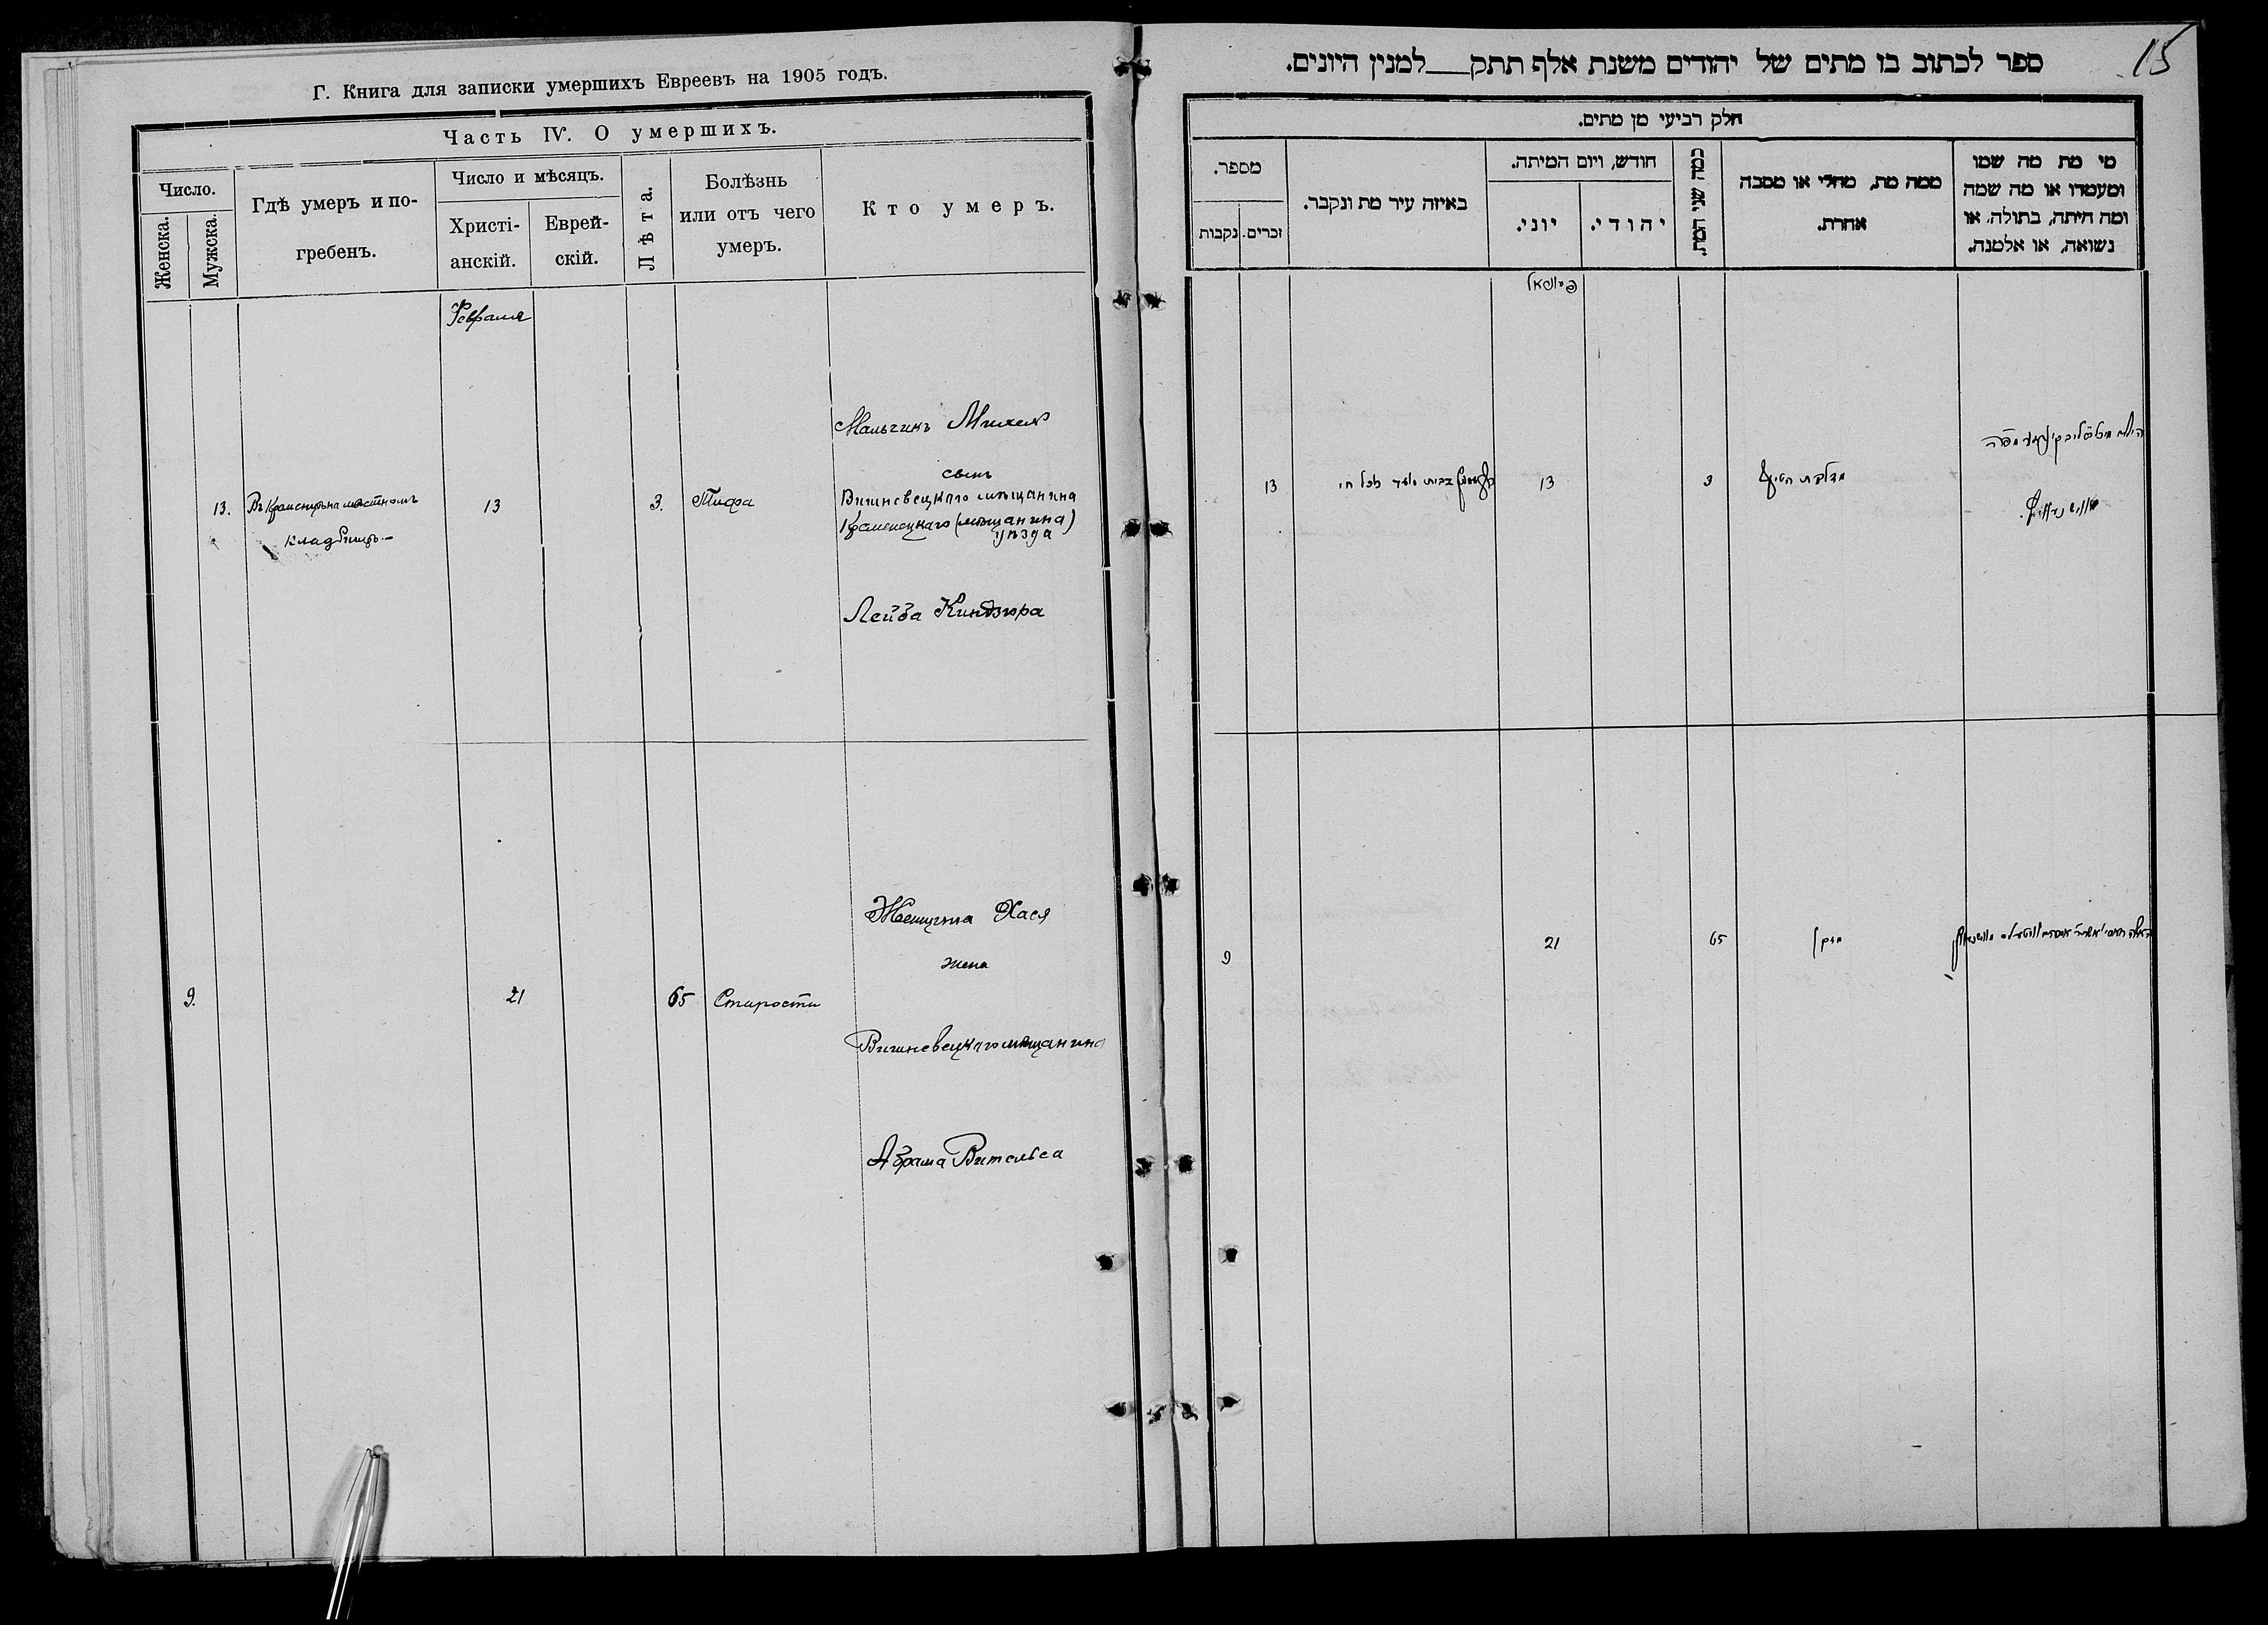 Г. Книга для записки умершихъ Евреевъ на 1905 годъ.
Часть IV. О умершихъ.
Число.
Женска.
Мужска.
Гдѣ умеръ и по-
гребенъ.
Число и мѣсяцъ.
Христі-
анскій.
Еврей-
скій.
Лѣта.
Болѣзнь
или отъ чего
умеръ.
Кто умеръ.
Февраля
13.
кладбищѣ.-
13
3.
Тифа
Мальчикъ Михель
сынъ
Вишневецкаго мѣщанина
Кременецкаго (мѣщанина)
уѣзда
Лейба Киндзюра
9.
21
65
Старости
Женщина Хася
жена
Вишневецкаго мѣщанина
Абрама Вительса
15
ספר לכתוב בו מתים של יהודים משנת אלף תתק__למנין היונים.
חלק רביעי מן מתים.
מספר.
נקבות
זכרים.
באיזה עיר מת ונקבר.
חודש, ויום המיתה.
יוני.
יהודי.
כמה שני המת.
ממה מת, מחלי או מסבה
אחרת.
מי מת מה שמו
ומעמדו או מה שמה
ומה היתה, בתולה, או
נשואה, או אלמנה.
13
13
3
9
21
65